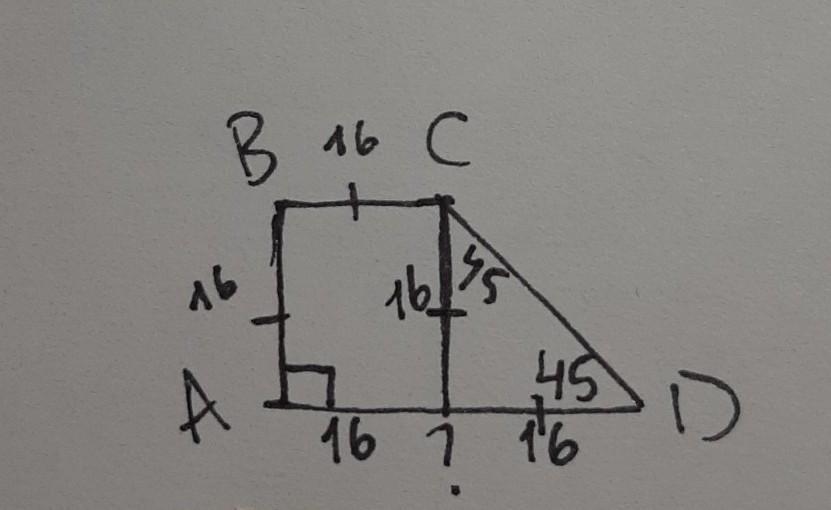 B 16 C
16
16 45
45
A D
16 ? 16